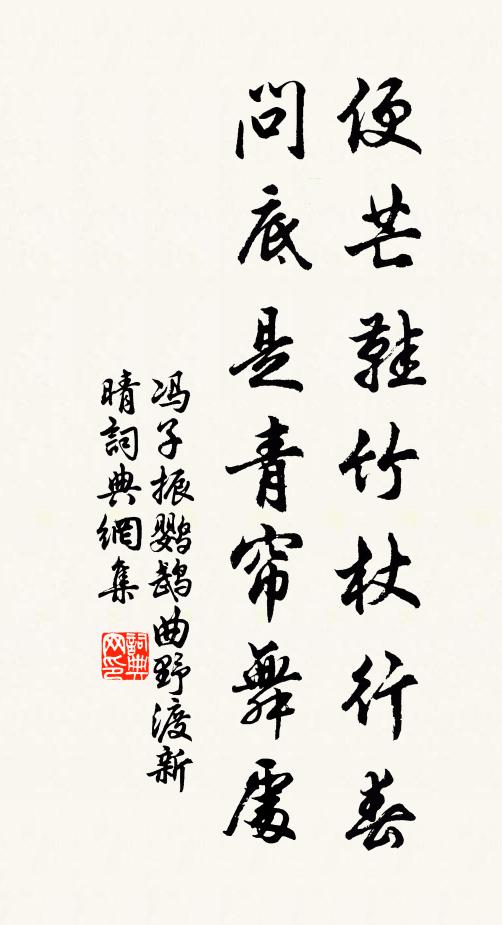 便芒鞋竹杖行春
問底是青帘舞處
冯子振鹦鵡曲野渡新
晴詞典網集
詞典网印